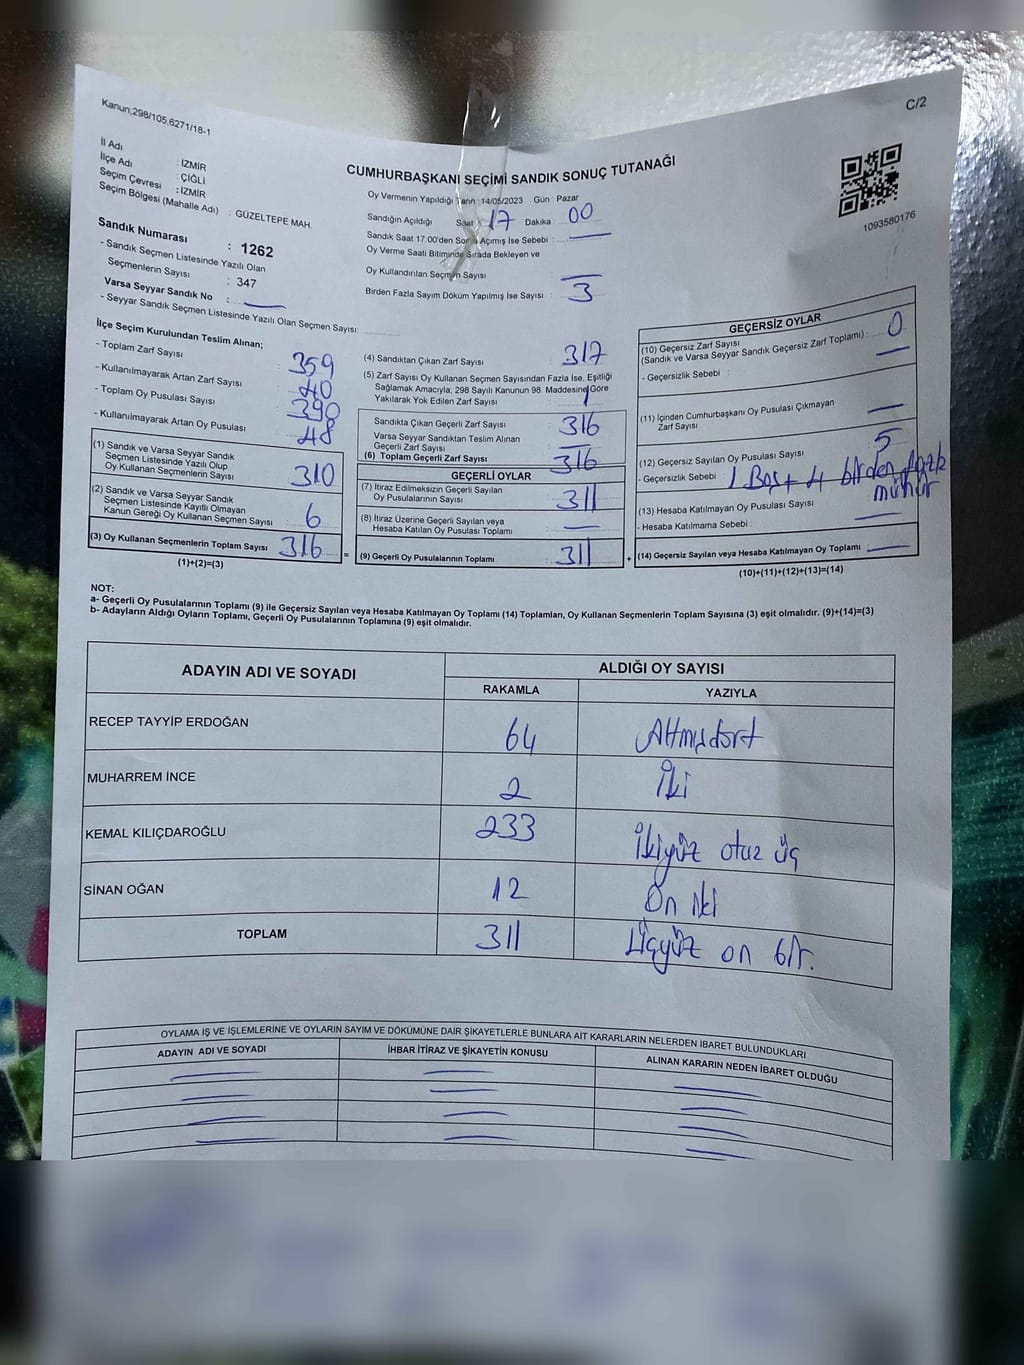 Kanun:298/105,6271/18-1
C/2
İl Adı : İZMİR
İlçe Adı : ÇİĞLİ
Seçim Çevresi : İZMİR
Seçim Bölgesi (Mahalle Adı) : GÜZELTEPE MAH.
CUMHURBAŞKANI SEÇİMİ SANDIK SONUÇ TUTANAĞI
Oy Vermenin Yapıldığı Tarih :14/05/2023 Gün : Pazar
Sandığın Açıldığı Saat : 17 Dakika : 00
Sandık Saat 17.00'den Sonra Açılmış İse Sebebi :
Oy Verme Saati Bitiminde Sırada Bekleyen ve
Oy Kullandırılan Seçmen Sayısı
Birden Fazla Sayım Döküm Yapılmış İse Sayısı : 3
1093580176
Sandık Numarası : 1262
- Sandık Seçmen Listesinde Yazılı Olan
Seçmenlerin Sayısı : 347
Varsa Seyyar Sandık No :
- Seyyar Sandık Seçmen Listesinde Yazılı Olan Seçmen Sayısı:
İlçe Seçim Kurulundan Teslim Alınan;
- Toplam Zarf Sayısı 359
- Kullanılmayarak Artan Zarf Sayısı 40
- Toplam Oy Pusulası Sayısı 390
- Kullanılmayarak Artan Oy Pusulası 48
(1) Sandık ve Varsa Seyyar Sandık
Seçmen Listesinde Yazılı Olup
Oy Kullanan Seçmenlerin Sayısı 310
(2) Sandık ve Varsa Seyyar Sandık
Seçmen Listesinde Kayıtlı Olmayan
Kanun Gereği Oy Kullanan Seçmen Sayısı 6
(3) Oy Kullanan Seçmenlerin Toplam Sayısı 316
(1)+(2)=(3)
=
(4) Sandıktan Çıkan Zarf Sayısı 317
(5) Zarf Sayısı Oy Kullanan Seçmen Sayısından Fazla İse, Eşitliği
Sağlamak Amacıyla, 298 Sayılı Kanunun 98. Maddesine Göre
Yakılarak Yok Edilen Zarf Sayısı 1
Sandıkta Çıkan Geçerli Zarf Sayısı 316
Varsa Seyyar Sandıktan Teslim Alınan
Geçerli Zarf Sayısı
(6) Toplam Geçerli Zarf Sayısı 316
GEÇERLİ OYLAR
(7) İtiraz Edilmeksizin Geçerli Sayılan
Oy Pusulalarının Sayısı 311
(8) İtiraz Üzerine Geçerli Sayılan veya
Hesaba Katılan Oy Pusulası Toplamı
(9) Geçerli Oy Pusulalarının Toplamı 311
+
GEÇERSİZ OYLAR
(10) Geçersiz Zarf Sayısı
(Sandık ve Varsa Seyyar Sandık Geçersiz Zarf Toplamı) : 0
- Geçersizlik Sebebi :
(11) İçinden Cumhurbaşkanı Oy Pusulası Çıkmayan
Zarf Sayısı
(12) Geçersiz Sayılan Oy Pusulası Sayısı 5
- Geçersizlik Sebebi : 1 Boş + 4 birden fazla
mühür
(13) Hesaba Katılmayan Oy Pusulası Sayısı
- Hesaba Katılmama Sebebi :
(14) Geçersiz Sayılan veya Hesaba Katılmayan Oy Toplamı
(10)+(11)+(12)+(13)=(14)
NOT:
a- Geçerli Oy Pusulalarının Toplamı (9) ile Geçersiz Sayılan veya Hesaba Katılmayan Oy Toplamı (14) Toplamları, Oy Kullanan Seçmenlerin Toplam Sayısına (3) eşit olmalıdır. (9)+(14)=(3)
b- Adayların Aldığı Oyların Toplamı, Geçerli Oy Pusulalarının Toplamına (9) eşit olmalıdır.
ADAYIN ADI VE SOYADI
ALDIĞI OY SAYISI
RAKAMLA YAZIYLA
RECEP TAYYİP ERDOĞAN 64 Altmışdört
MUHARREM İNCE 2 İki
KEMAL KILIÇDAROĞLU 233 İkiyüz otuz üç
SİNAN OĞAN 12 On iki
TOPLAM 311 Üçyüz on bir.
OYLAMA İŞ VE İŞLEMLERİNE VE OYLARIN SAYIM VE DÖKÜMÜNE DAİR ŞİKAYETLERLE BUNLARA AİT KARARLARIN NELERDEN İBARET BULUNDUKLARI
ADAYIN ADI VE SOYADI
İHBAR İTİRAZ VE ŞİKAYETİN KONUSU
ALINAN KARARIN NEDEN İBARET OLDUĞU